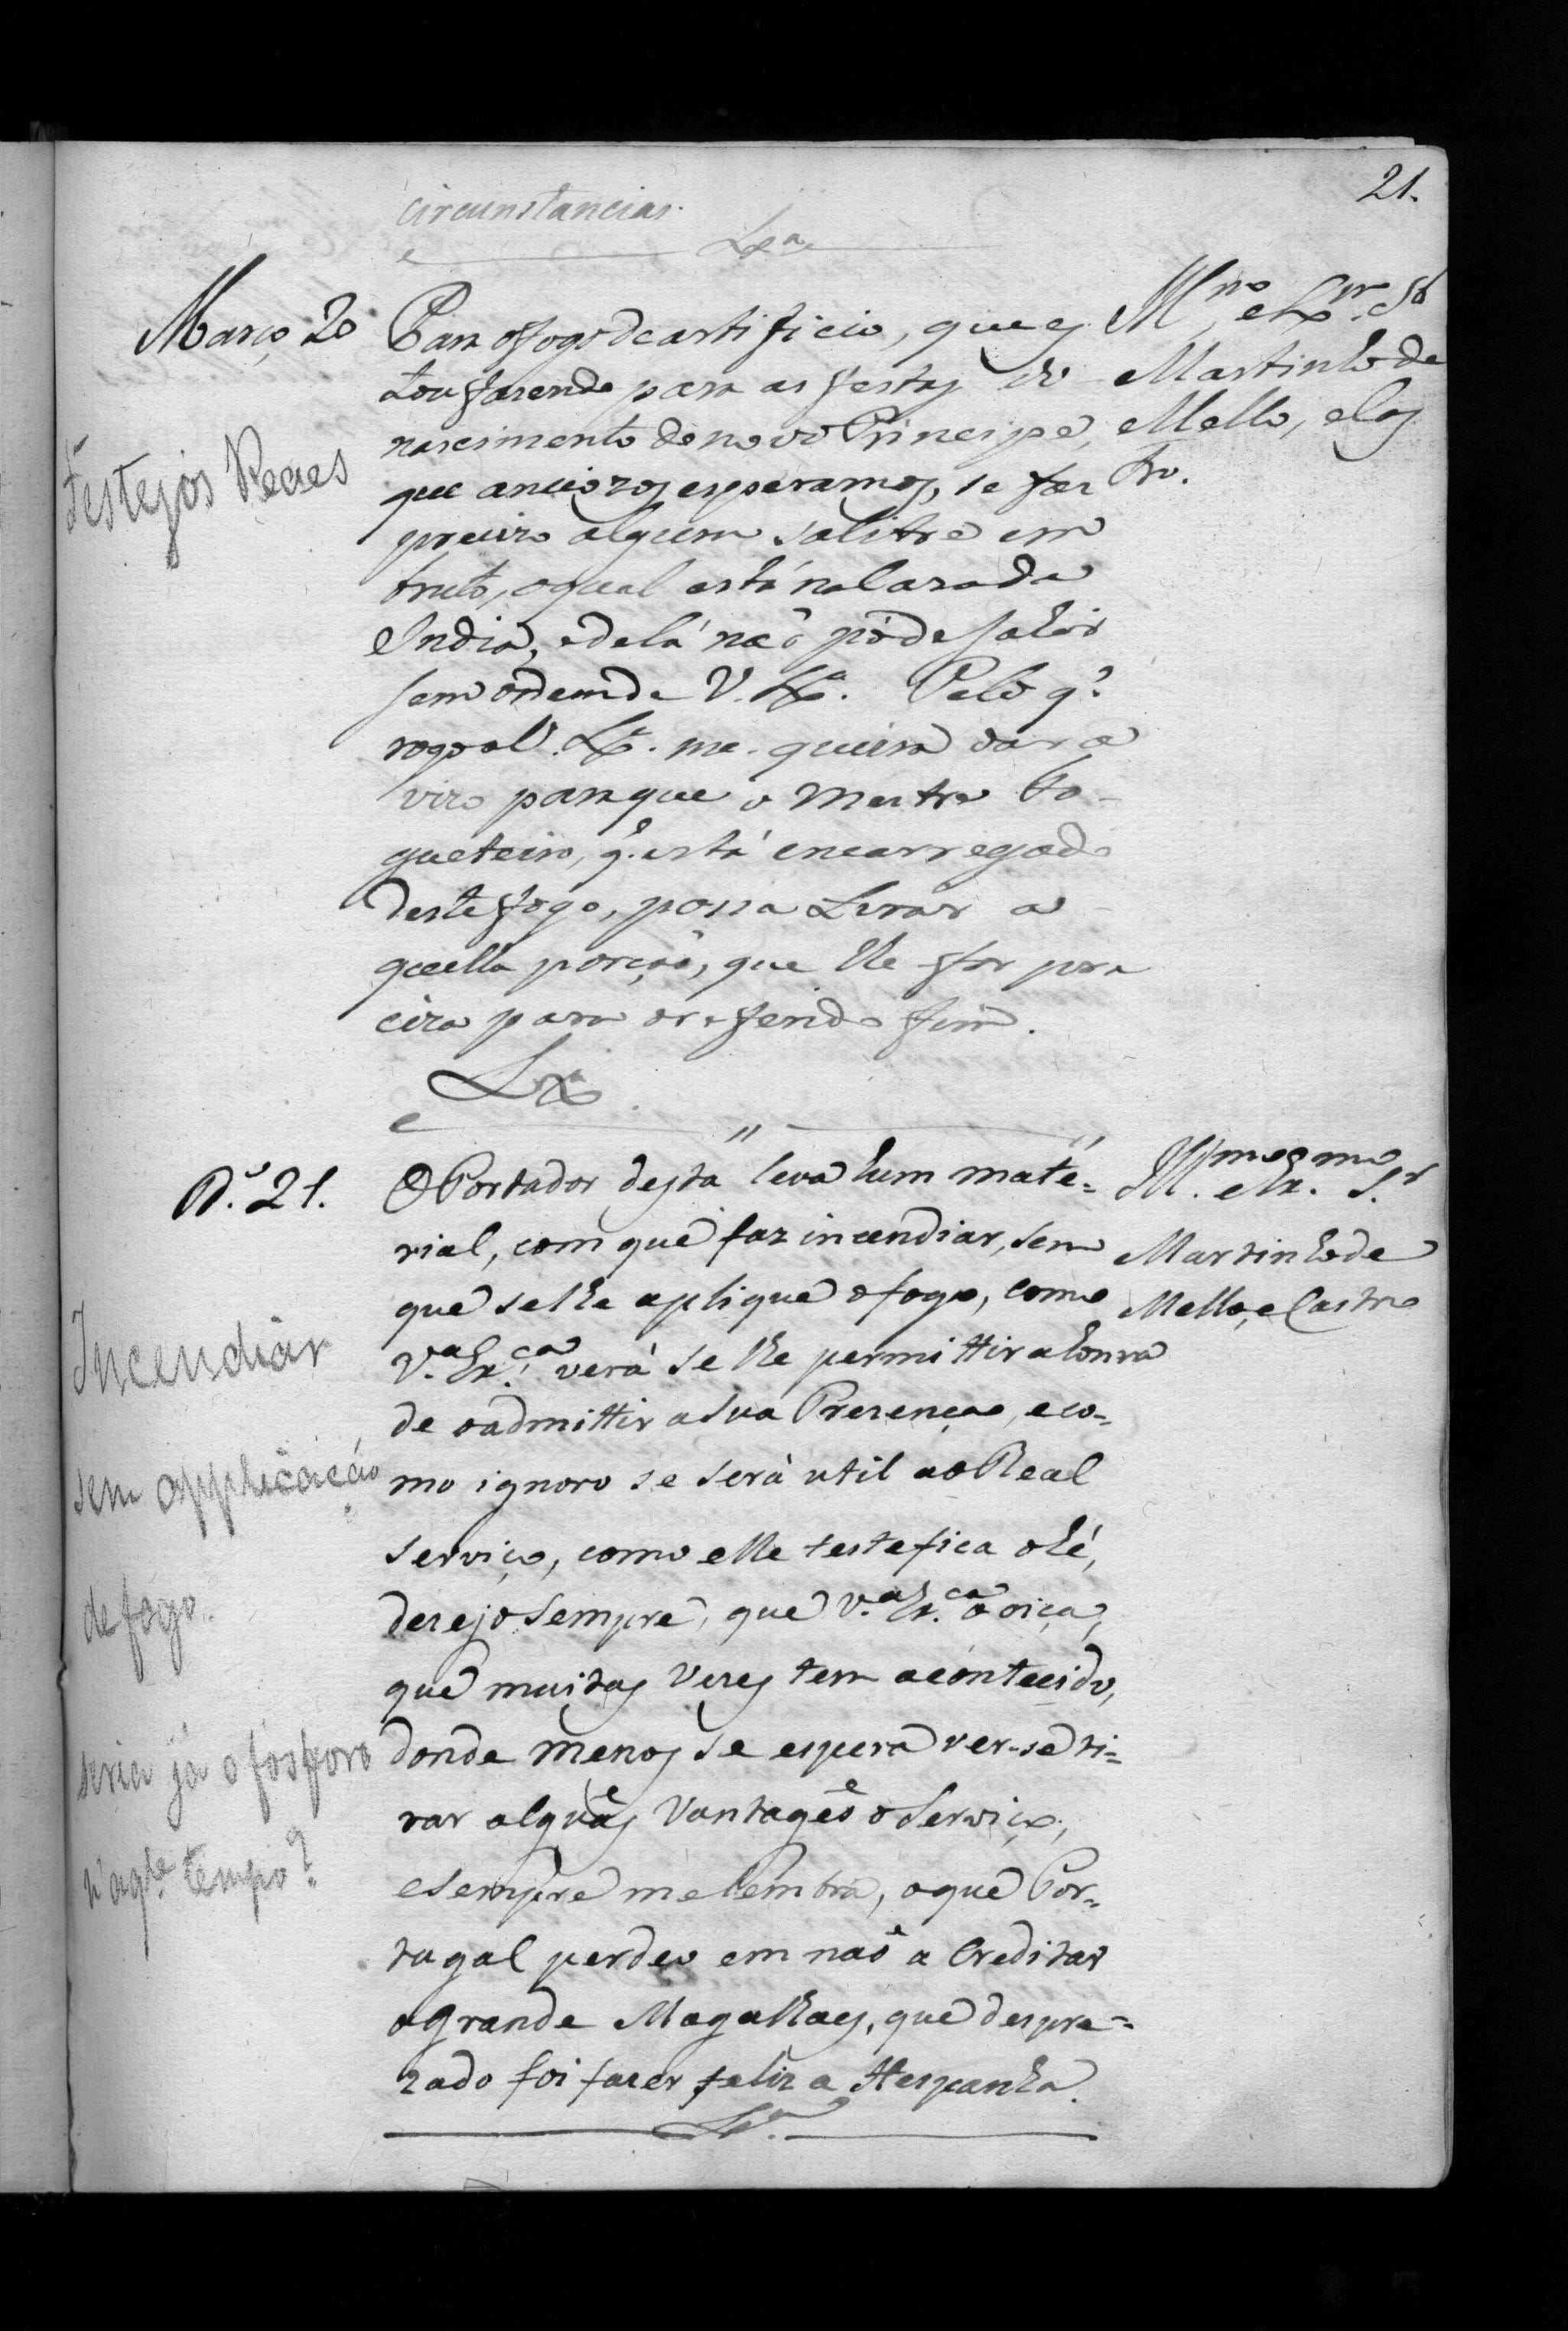 21.
circunstancias.
Lxa
Março 20
Festejos Reaes
Para o fogo de artificio, que es
tou farendo para as festas do
nascimento do novo Principe,
que anciozos esperamos, se faz
precizo algum salitre em
bruto, o qual está na Caza da
India, e de lá naõ pòde sahir
sem ordem de V. Exa. Pelo q.
rogo a V. Exa. me queira dar a
vizo para que o Mestre Fo-
gueteiro, q. está encarregado
deste fogo, possa tirar a
quella porçaõ, que lhe for pre
ciza para o referido fim.
Lxa
Mmo e Exmo Sr
Martinho de
Mello, e Cas
tro.
Dº. 21.
Incendiar
sem applicação
de fogo.
seria já o fosforo
n'aqle. tempo?
O Portador desta leva hum maté=
rial, com que faz incendiar, sem
que se lhe aplique o fogo, como
V.a Ex.ca verá se lhe permittir a honra
de o admittir a Sua Prezença, e co=
mo ignoro se será util ao Real
serviço, como elle testefica o hé,
dezejo sempre, que V.a Ex.ca o oiça,
que muitas vezes tem acontecido,
donde menos se espera ver-se ti=
rar alguãs Vantagẽs o Serviço,
e sempre me lembra, o que Por=
tugal perdeo em naõ a Creditar
o grande Magalhaes, que despre=
zado foi fazer feliz a Hespanha.
Lxa
Illmo e Exmo Sr.
Martinho de
Mello, e Castro